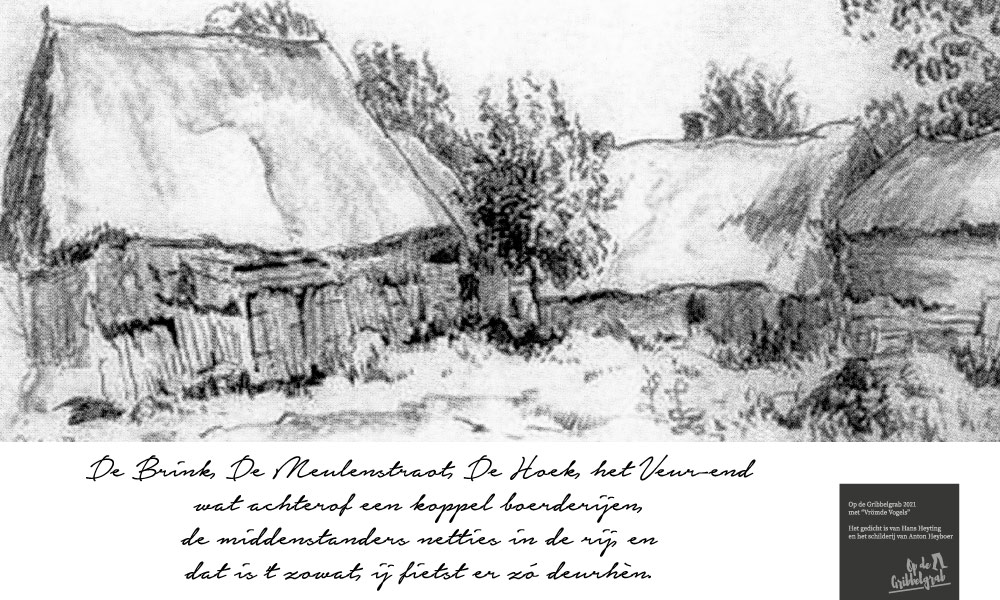 De Brink, De Meulenstraot, De Hoek, het Veur-end
wat achterof een koppel boerderijen,
de middenstanders netties in de rij, en
dat is 't zowat, ij fietst er zó deurhèn.
Op de Gribbelgrab 2021
met "Vrömde Vogels"
Het gedicht is van Hans Heyting
en het schilderij van Anton Heyboer
Op de
Gribbelgrab